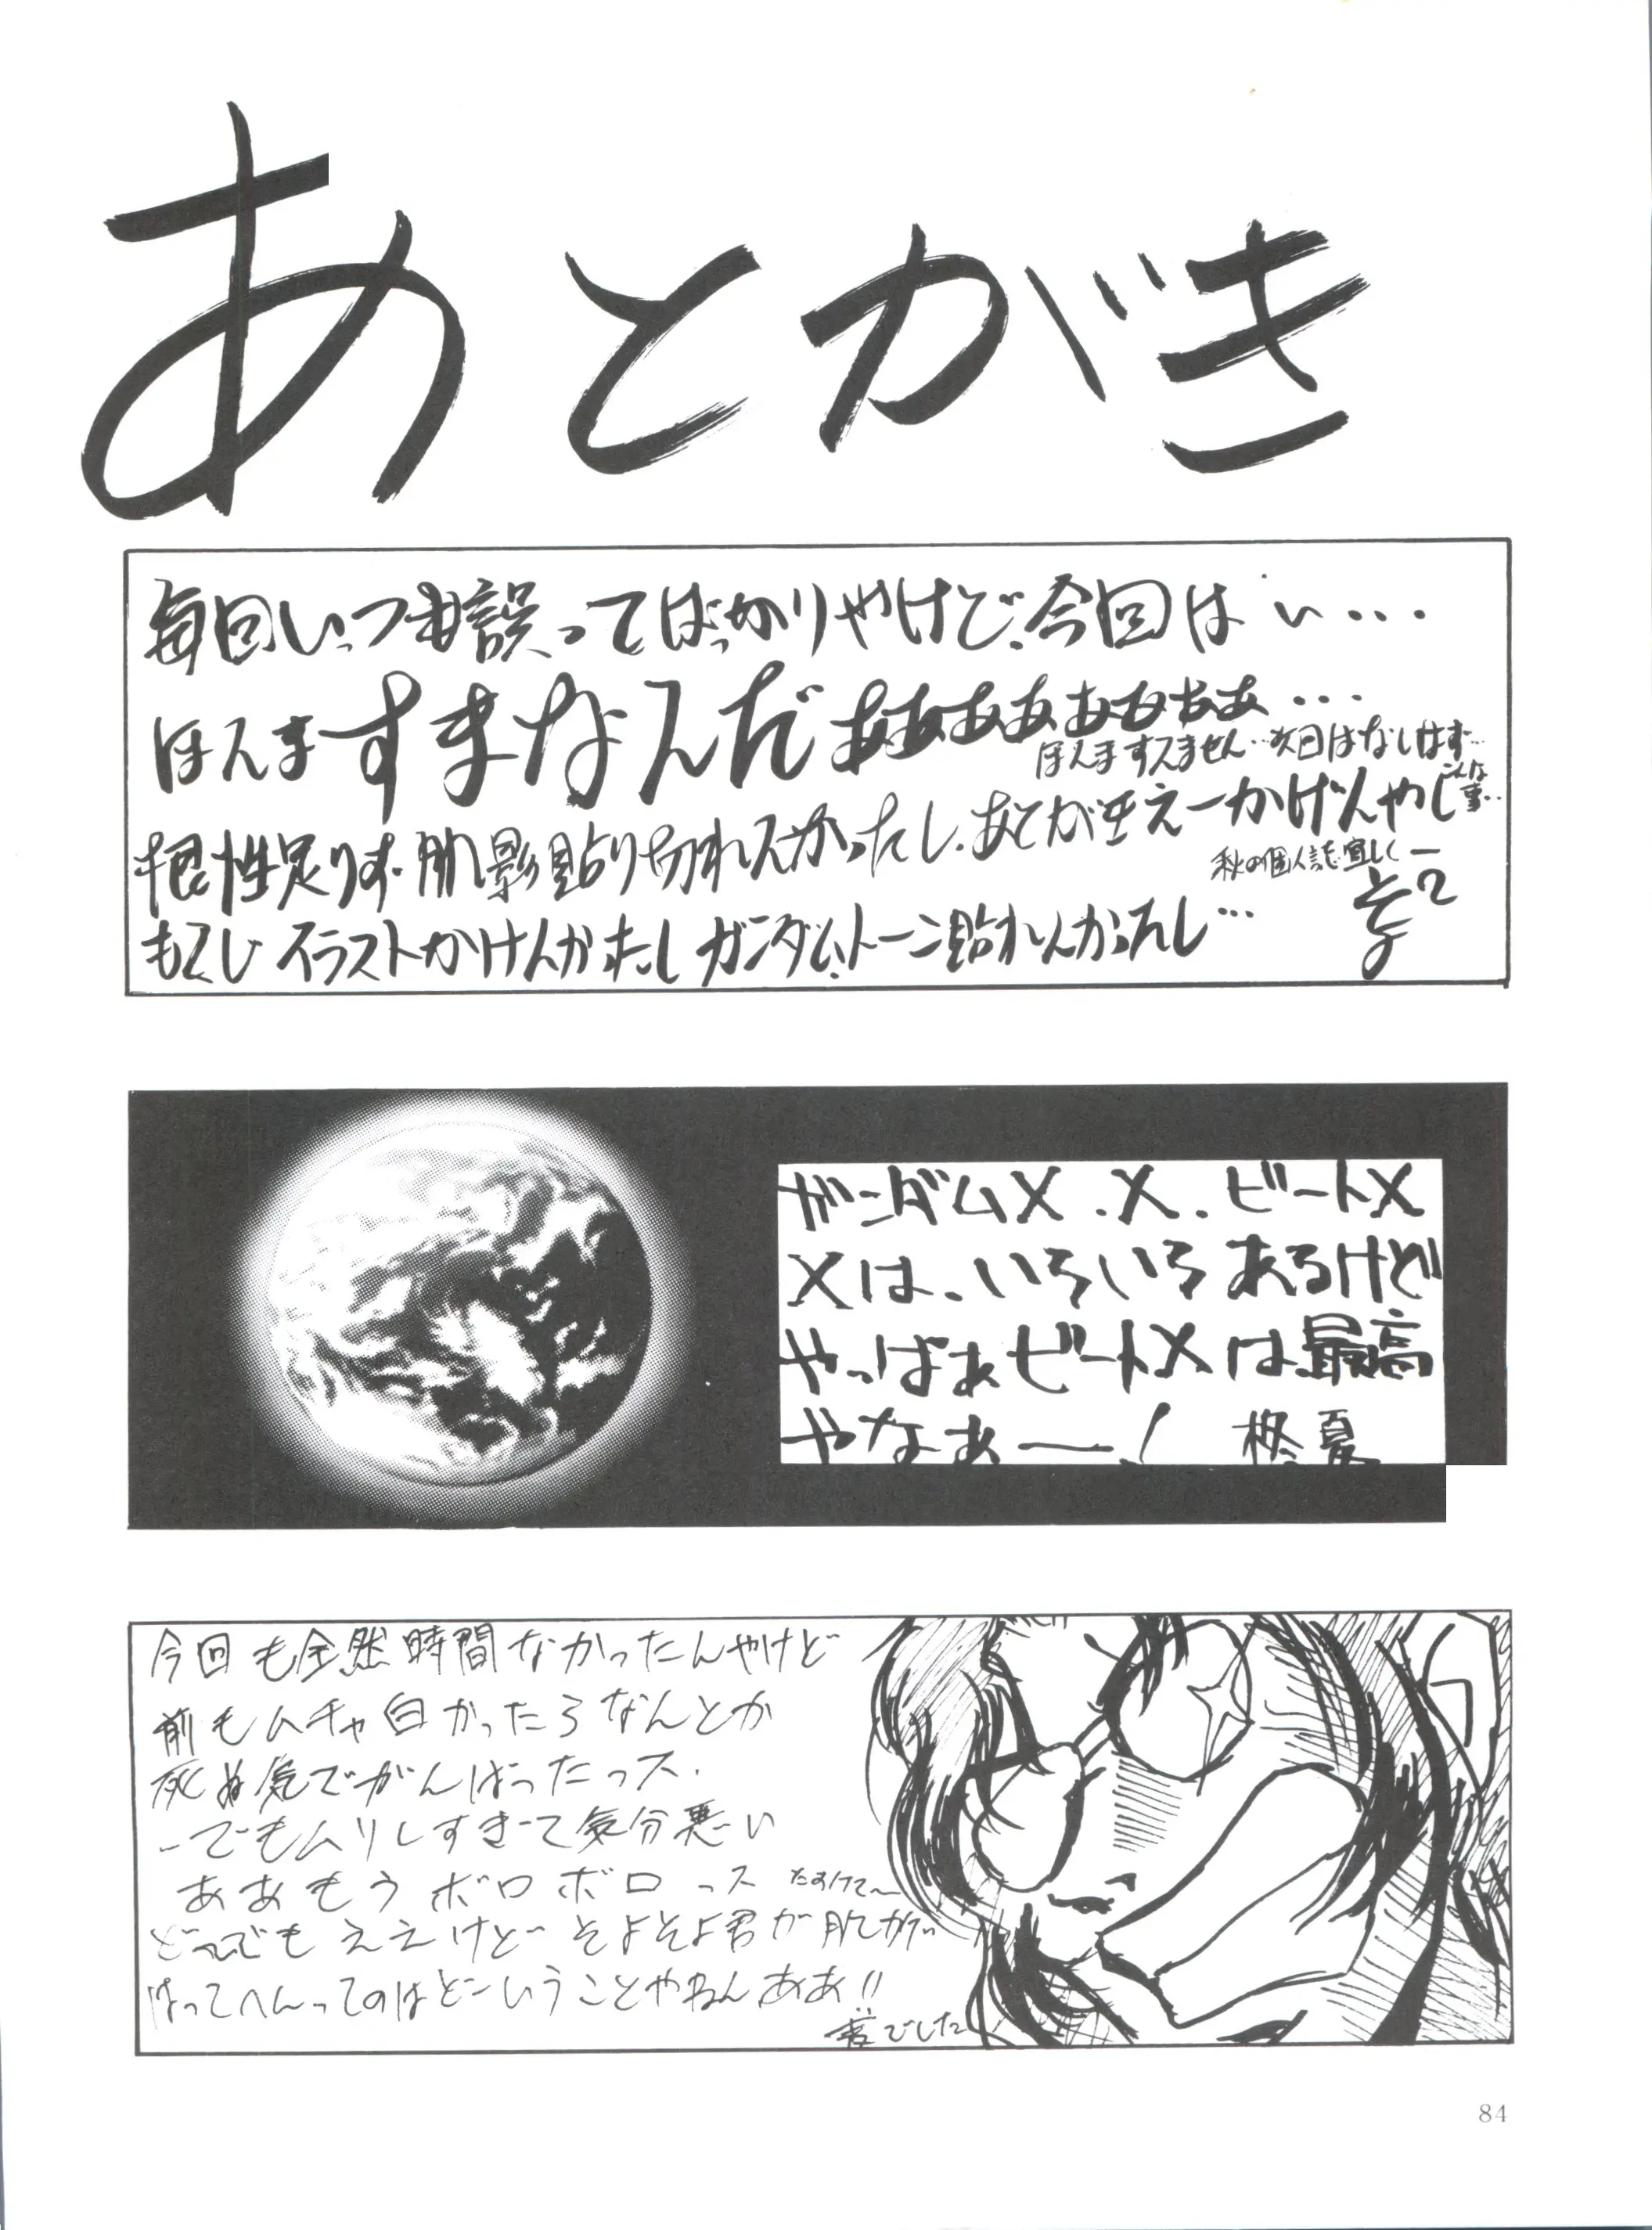 あとがき
毎回いっつも誤ってばっかりやけど、今回は
ほんますまなんだぁぁぁぁぁぁぁぁ…
ほんますいません…次回はなしはず…
こんな事…
根性足りず、肌影貼り切れんかったし、あとがきえーかげんやし
秋の個人誌宜しくー
もくじイラストかけんかったし ガンダムトーン貼れんかったし…
ガンダムX.X.ビートX
Xは、いろいろあるけど
やっぱぁビートXは最高
やなぁー! 柊夏
今回も全然時間なかったんやけど
前もムチャ白かったろなんとか
死ぬ気でがんばったっス.
でもムリしすぎて気分悪い
ああもうボロボロっス たすけて〜
どーでもええけど そよそよ君が肌かげ
はってへんってのはどーいうことやねんああ!!
でした
84